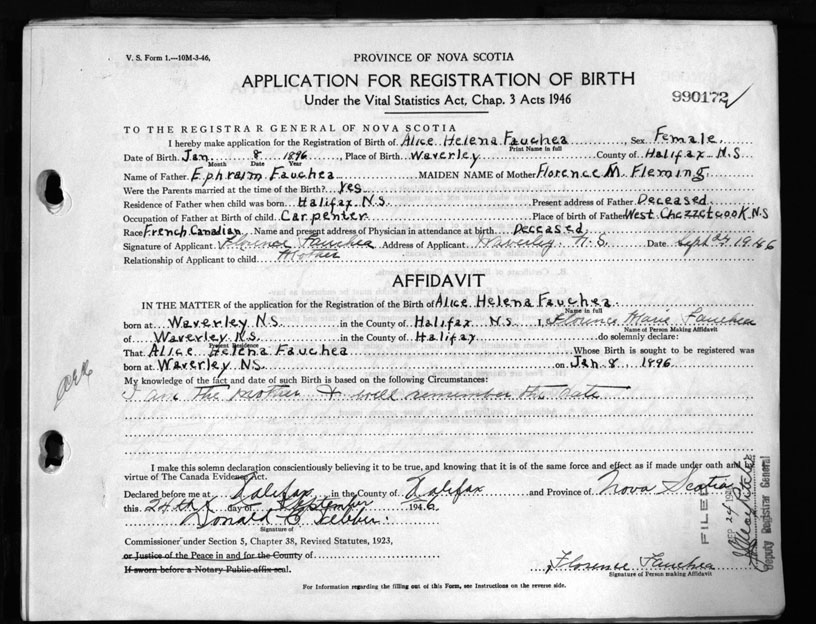 V. S. Form 1.—10M-3-46,
PROVINCE OF NOVA SCOTIA
APPLICATION FOR REGISTRATION OF BIRTH
Under the Vital Statistics Act, Chap. 3 Acts 1946
990172
TO THE REGISTRAR GENERAL OF NOVA SCOTIA
I hereby make application for the Registration of Birth of Alice Helena Fauchea, Sex Female
Print Name in full
Date of Birth Jan 8 1896, Place of Birth Waverley County of Halifax N.S
Month Date Year
Name of Father Ephraim Fauchea MAIDEN NAME of Mother Florence M. Fleming
Were the Parents married at the time of the Birth? Yes
Residence of Father when child was born Halifax N.S. Present address of Father Deceased
Occupation of Father at Birth of child Carpenter Place of birth of Father West Chezzetcook N.S
Race French Canadian Name and present address of Physician in attendance at birth Deceased
Signature of Applicant Florence Fauchea Address of Applicant Waverley N.S. Date Sept 1946
Relationship of Applicant to child Mother
AFFIDAVIT
IN THE MATTER of the application for the Registration of the Birth of Alice Helena Fauchea
Name in full
born at Waverley N.S. in the County of Halifax N.S I, Florence Marie Fauchea
Name of Person Making Affidavit
of Waverley N.S. in the County of Halifax do solemnly declare:
Present Residence
That Alice Helena Fauchea Whose Birth is sought to be registered was
born at Waverley NS. on Jan 8, 1896.
My knowledge of the fact and date of such Birth is based on the following Circumstances:
I am the mother & well remember the date
I make this solemn declaration conscientiously believing it to be true, and knowing that it is of the same force and effect as if made under oath and by
virtue of The Canada Evidence Act.
Declared before me at Halifax in the County of Halifax and Province of Nova Scotia
this 24th day of September 1946.
Donald
Signature of
Commissioner under Section 5, Chapter 38, Revised Statutes, 1923,
or Justice of the Peace in and for the County of
If sworn before a Notary Public affix seal.
Florence Fauchea
Signature of Person making Affidavit
For Information regarding the filling out of this Form, see Instructions on the reverse side.
FILED
SEP 24
Deputy Registrar General